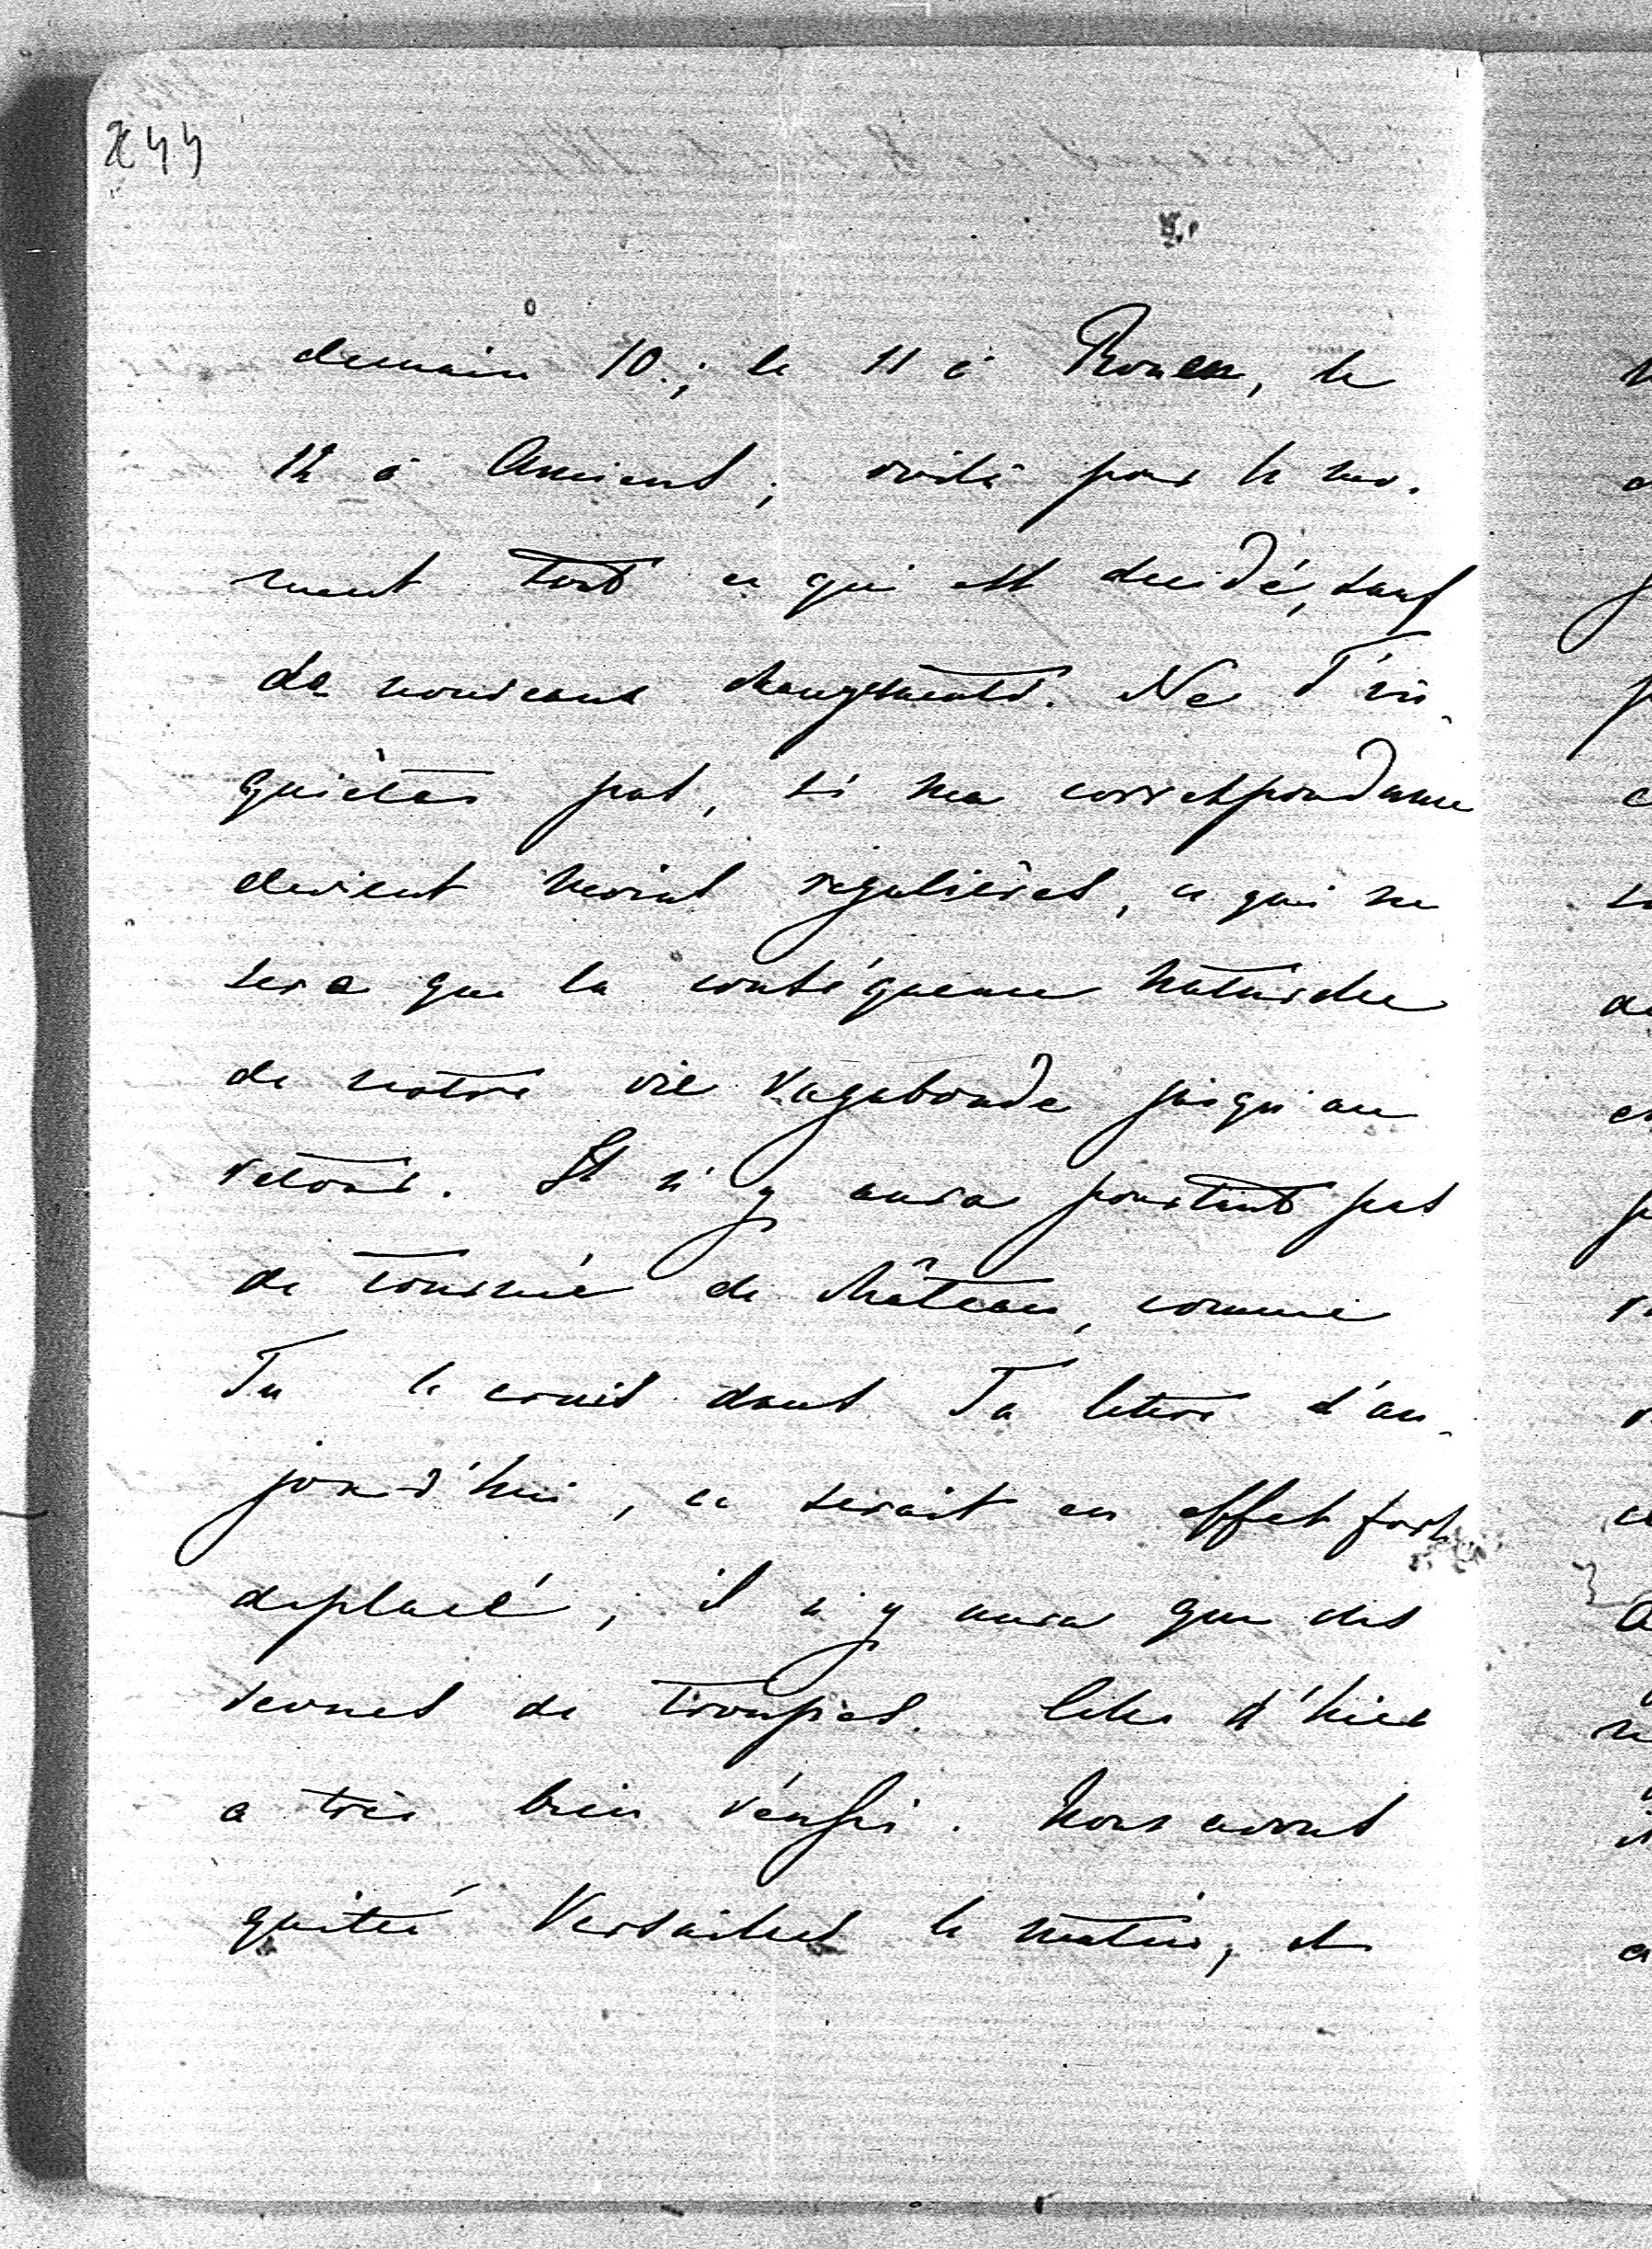 244
demain 10.; le 11 à Rouen, le
12 à Amiens; voilà pour le mo-
ment tout ce qui est decidé, sauf
de nouveaux changements. Ne T'in-
quiètes pas, si ma correspondance
devient moins regulière, ce qui ne
sera que la conséquence naturelle
de notre vie vagabonde jusqu'au
retour. Il n'y aura pourtant pas
de tournée de château, comme
Tu le crois dans Ta lettre d'au-
jourd'hui, ce serait en effet fort
deplacé; il n'y aura que des
revues de troupes. Celle d'hier
a très bien réussi. Nous avons
quitté Versailles le matin, et